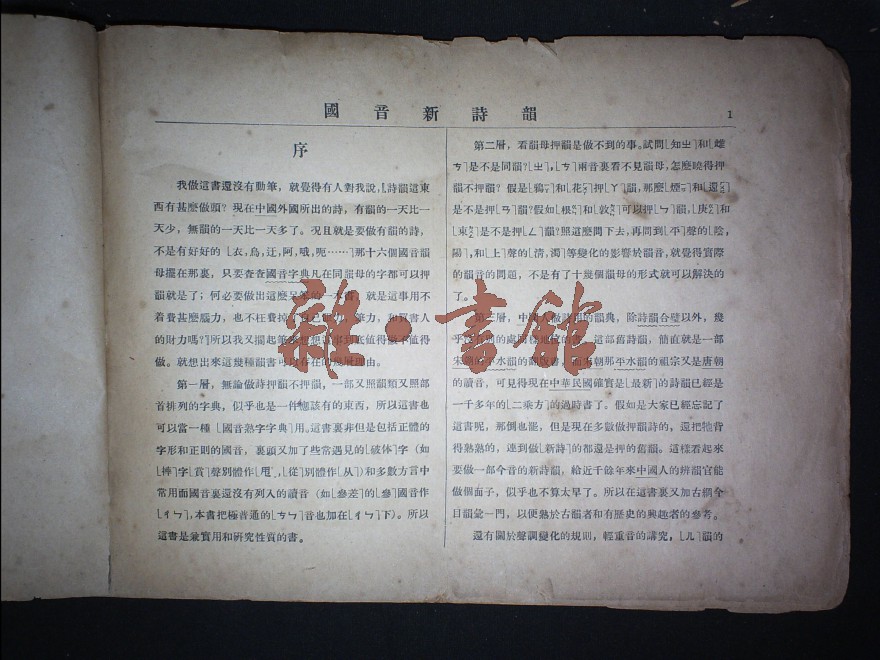 國音新詩韻
1
序
我做這書還沒有動筆，就覺得有人對我說，⌊詩韻這東
西有甚麼做頭？現在中國外國所出的詩，有韻的一天比一
天少，無韻的一天比一天多了。況且就是要做有韻的詩，
不是有好好的⌊衣，烏，迂，阿，哦，呃……⌉那十六個國音韻
母擺在那裏，只要查查國音字典凡在同韻母的字都可以押
韻就是了；何必要做出這麼呆笨的一本書？就是這事用不
着費甚麼腦力，也不枉費掉了自己
的財力嗎？⌉所以我又擱起筆來想想
做。就想出來這幾種韻書可以存在的
第一層，無論做詩押韻不押韻，一部又照韻類又照部
首排列的字典，似乎也是一件應該有的東西，所以這書也
可以當一種⌊國音熟字字典⌉用。這書裏非但是包括正體的
字形和正則的國音，裏頭又加了些常遇見的⌊破体⌉字（如
聲別體作⌊甩⌉，⌊從⌉別體作⌊从⌉）和多數方言中
常用而國音裏還沒有列入的讀音（如⌊參差⌉的⌊參⌉國音作
⌊ㄔㄣ⌉，本書把極普通的⌊ㄘㄣ⌉音也加在⌊ㄔㄣ⌉下）。所以
這書是兼實用和硏究性質的書。
第二層，看韻母押韻是做不到的事。試問⌊知ㄓ⌉和⌊雌
ㄘ⌉是不是同韻？⌊ㄓ⌉，⌊ㄘ⌉兩音裏看不見韻母，怎麼曉得押
韻不押韻？假是⌊鴉⌉和⌊花⌉押⌊ㄚ⌉韻，那麼⌊煙⌉和⌊還⌉
是不是押⌊ㄢ⌉韻？假如⌊根⌉和⌊敦⌉可以押⌊ㄣ⌉韻，⌊庚⌉和
⌊東⌉是不是押⌊ㄥ⌉韻？照這麼問下去，再問到⌊平⌉聲的⌊陰，
陽⌉，和⌊上⌉聲的⌊清，濁⌉等變化的影響於韻音，就覺得實際
的韻音的問題，不是有了十幾個韻母的形式就可以解決的
了。
第三層，中國人做詩用的韻典，除詩韻合璧以外，幾
這部舊詩韻，簡直就是一部
宋朝的平水韻的翻版書，而宋朝那平水韻的祖宗又是唐朝
的讀音，可見得現在中華民國確實是⌊最新⌉的詩韻已經是
一千多年的⌊二乘方⌉的過時書了。假如是大家已經忘記了
這書呢，那倒也罷，但是現在多數做押韻詩的，還把牠背
得熟熟的，連到做⌊新詩⌉的都還是押的舊韻。這樣看起來
要做一部今音的新詩韻，給近千餘年來中國人的辨韻官能
做個面子，似乎也不算太早了。所以在這書裏又加古網今
目韻彙一門，以便熟於古韻者和有歷史的興趣者的參考。
還有關於聲調變化的規則，輕重音的講究，⌊ㄦ⌉韻的
雜·書館